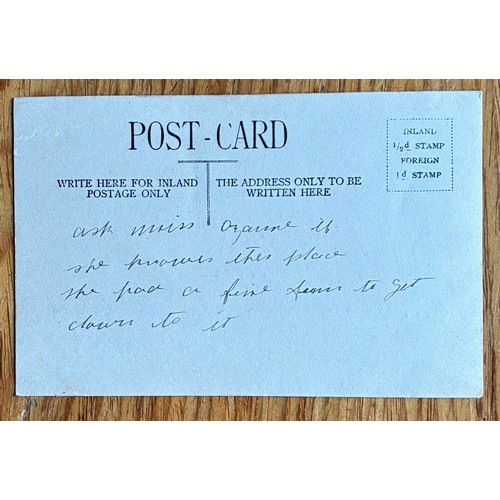 POST-CARD
INLAND
1/2d STAMP
FOREIGN
1d STAMP
WRITE HERE FOR INLAND
POSTAGE ONLY
THE ADDRESS ONLY TO BE
WRITTEN HERE
ask miss Ozanne if
she knows this place
she had a fine to get
down to it